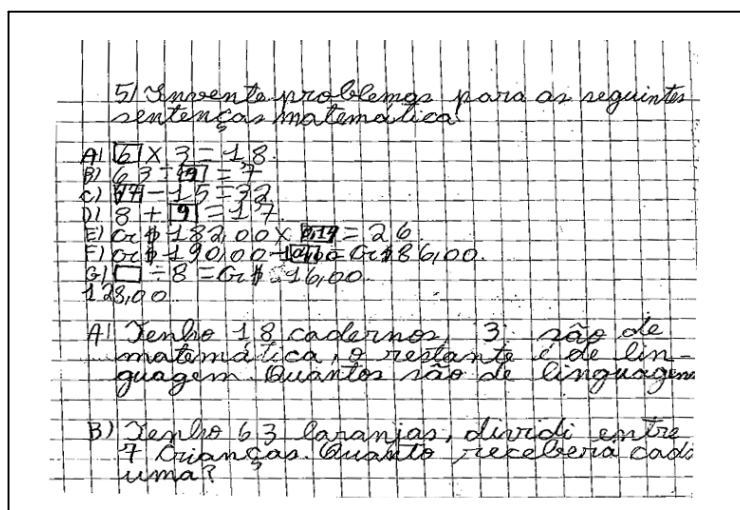 5) Invente problemas para as seguintes
sentenças matemática
A) 6 X 3 = 18
B) 63 ÷ 9 = 7
C) 47 - 15 = 32
D) 8 + 9 = 17
E) Cr$ 182,00 X = 26
F) Cr$ 190,00 - = Cr$ 86,00.
G) ÷ 8 = Cr$ 16,00
128,00
A) Tenho 18 cadernos, 3 são de
matemática, o restante é de lin-
guagem. Quantos são de linguagem
B) Tenho 63 laranjas, dividi entre
7 crianças. Quanto receberá cada
uma?